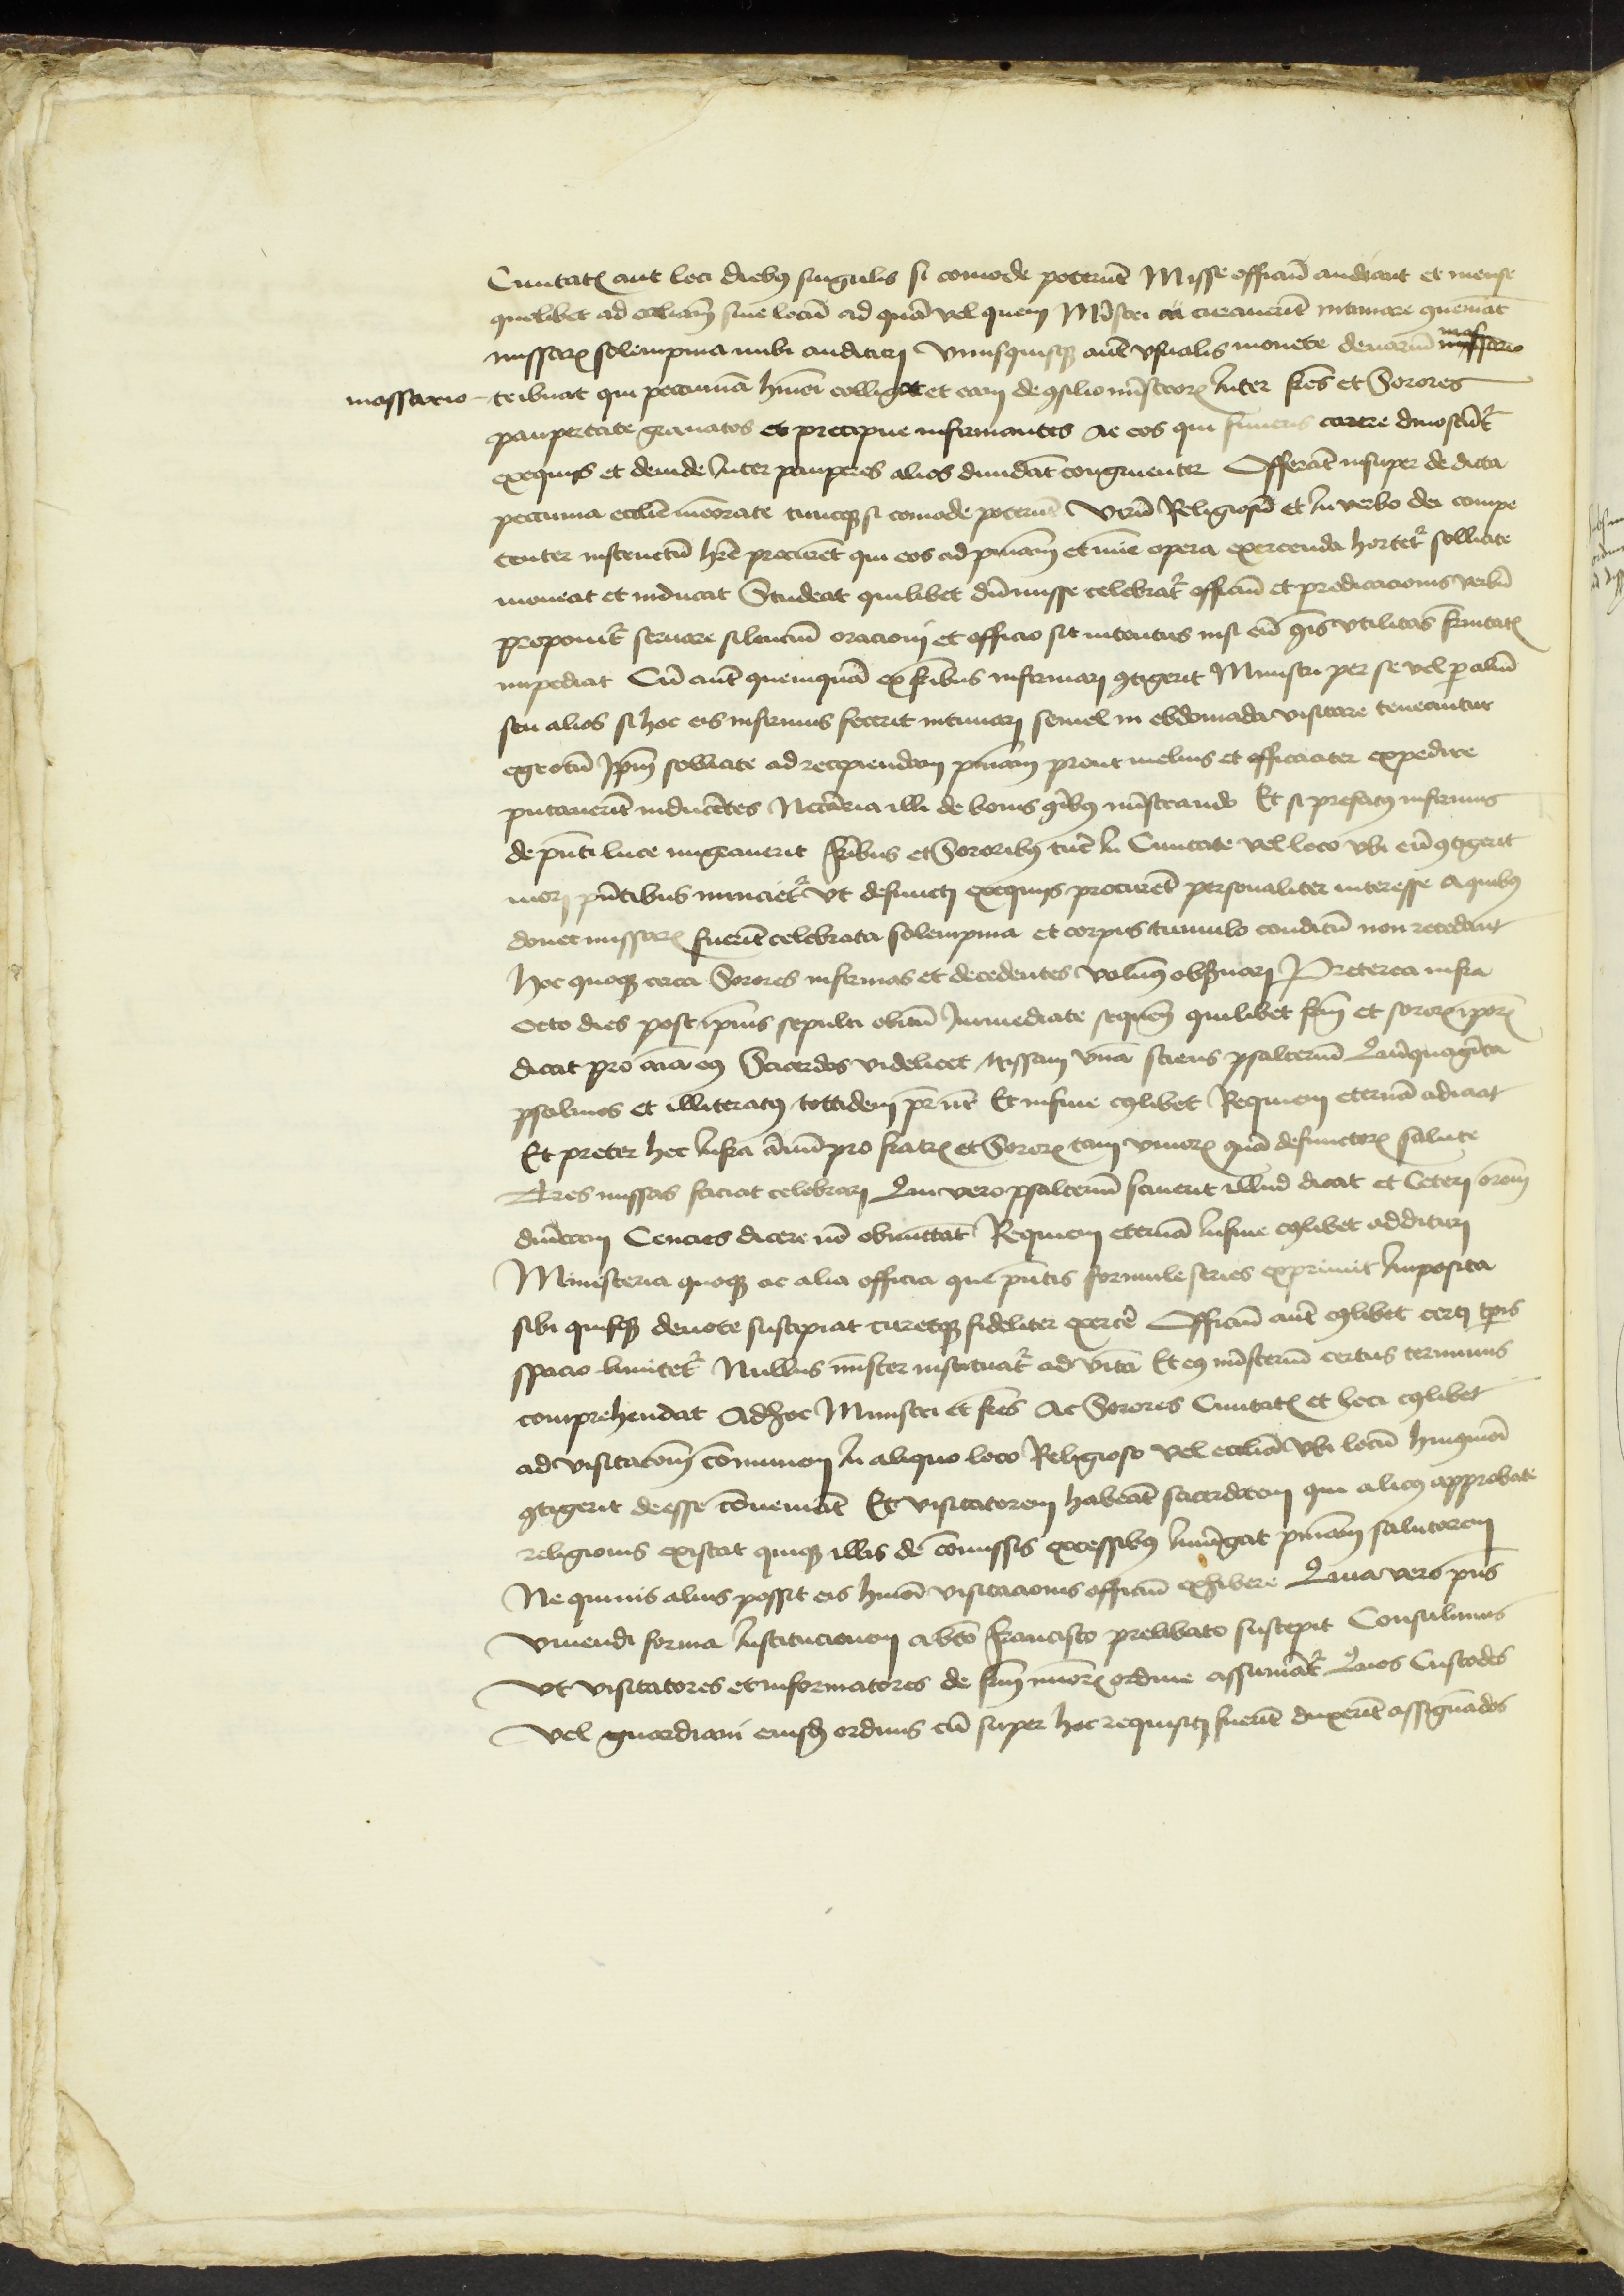 Ciuitatꝭ aut loci diebꝰ singulis si comode poterūt Misse officiū audiant et mense
quolibet ad eccliam̄ siue locū ad quā vel quem Mīstri curauerūt intimare ꝯueniāt
missarꝝ solempnia inibi audituri Vnusquisqꝫ aūt vsualis monete denariū massario
massario tribuat qui pecuniā hmōi colligat et eam de ꝯsilio mīstrorꝝ Inter fr̄es et Sorores
paupertate grauatos et precipue infirmantes Ac eos qui funeris carere dinoscūt᷑
exequijs et deinde Inter pauperes alios diuidāt congruenter Offerāt insuper de dicta
peccunia ecclie mēorate tuncqꝫ si comode poterūt Virū Religiosū et In verbo dei compe
tenter instructū hr̄e procurēt qui eos ad pn̄iam et mīe opera exercenda hortet᷑ sollicite
moneat et inducat Studeat quilibet dū misse celebrat᷑ officiū et predicacionis verbū
proponit᷑ seruare silenciū oracioni et officio sit intentus nisi eū ꝯis vtilitas fr̄nitatꝭ
impediat Cū aūt quemquā ex fr̄ibus infirmari ꝯtigerit Ministri per se vel ꝑ aliū
seu alios si hoc eis infirmus fecerit intimari semel in ebdomada visitare teneantur
egrotū Ip̄m sollicite ad recipiendam pn̄iam prout melius et efficaciter expedire
putauerūt inducētes Necc̄aria illi de bonis ꝯībꝰ mīstrando Et si prefatꝰ infirmus
de pn̄ti luce migrauerit fr̄ibus et Sororibꝰ tūc In Ciuitate vel loco vbi eū ꝯtigerit
mori pn̄tibus nunciet᷑ vt defuncti exequijs procurēt personaliter interesse a quibꝰ
donec missarꝝ fuerūt celebrata solempnia et corpus tumulo conditū non recedant
Hoc quoqꝫ circa Sorores infirmas et decedentes volumꝰ obseruari Preterea infra
octo dies post ipius sepulti obitū Inmediate sequen̄ quilibet fr̄m et sororꝝ ipōrꝝ
dicat pro aīa eiꝰ Sacerdos videlicet Missam vnā sciens psalteriū Quīquagīta
psalmos et illiteratꝰ tottidem pr̄ nr̄ Et in fine cuꝰlibet Requiem eternā adiciat
Et preter hec Infra ānū pro fratrꝝ et Sororꝝ tam viuorꝝ quā defunctorꝝ salute
Tres missas faciat celebrari Qui vero psalteriū sciuerit illud dicat et Ceteri orōem
dn̄icam Cencies dicere nō obmittāt Requiem eternā In fine cuꝰlibet addituri
Ministeria quoqꝫ ac alia officia que pn̄tis formule series exprimit Imposita
sibi quisqꝫ deuote suscipiat curetqꝫ fideliter exercē Officiū aūt cuꝰlibet certi tp̄is
spacio limitet᷑ Nullus mīster instituat᷑ ad vitā Et eiꝰ mīsteriū certus terminus
comprehendat Ad hoc Ministri et fr̄es Ac Sorores Ciuitatꝭ et loci cuꝰlibet
ad visitacōem cōmunem In aliquo loco Religioso vel eccliā vbi locū huiꝰmōi
ꝯtigerit deesse cōueniāt Et visitatorem habeāt sacerdotem qui alicuꝰ approbate
religionis existat quiqꝫ illis de cōmissis excessibꝰ Iniūgat pn̄iam salutarem
Ne quiuis alius possit eis hmōi visitacionis officiū exhibere Quia vero pn̄s
viuendi forma Institucionem a bt̄o Francisco prelibato suscepit Consulimus
vt visitatores et informatores de fr̄m minorꝝ ordine assumāt᷑ Quos Custodes
vel gwardiani eiusdem ordinis cū super hoc requisiti fuerīt duxerūt assignādos